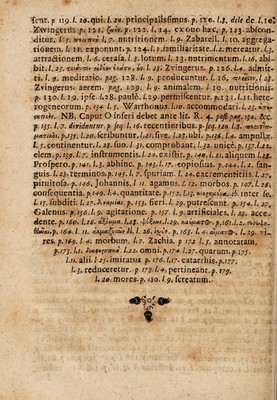 sent. p 119. l. 20. qui. l. 24. principalissimus. p. 120. l. 8. dele de. l. 10.
Zwingerus p. 121. p. 122. l. 14. ex quo hæc, p. 123. abscon-
ditur, l. 5. l. 7. nutritionem. l. 9. Zabarell, l. 10. aggrega-
tionem. l. 11. exponunt. p. 124. l. 1. familiaritate. l. 2. mereatur. l. 3.
attractionem, l. 6. cerasa. l. 8. lotum. l. 13. nutrimentum. l. 16. abi-
bit. l. 25. l. 25. Zvingerus. p. 126. l. 4. admit-
ti, l. 9. meditatio. pag. 128. l. 9. producentur. l. 16. l. 25.
Zvingerus aerem. pag. 129. l. 9. animalem. l. 10. nutritionis.
p. 130. l. 19. ipse. l. 28. paulò. l. 29. permiscentur. p. 131. l. 21. hete-
rogeneorum. p. 134. l. 5. Warthonus. l. 10. accommodari. l. 22.
NB. Caput O inferi debet ante lit. R. 4. post pag. 134. &c.
p. 135. l. 5. dividentur. p seq. l. 16. recentioribus. p seq. 128. l.
p. 135. l. 20. scribuntur. l. 21. sive, l. 23. abit. p. 136. l. 4. ampullæ.
l. 5. continentur. l. 28. suo. l. 31. comprobant. l. 32. unicè. p. 137. l. 22.
elem, p. 139. l. 7. instrumentis. l. 20. exsibit. p. 140. l. 21. aliquem l. 28.
Prospero. p. 141. l. 3. abbinc. p. 143. l. 17. copiosius. p. 144. l. 2. san-
guis. l. 23. terminos. p. 145. l. 7. spuriam. l. 24. excrementitiis. l. 27.
pituitosis. p. 146. Johannis, l. 11. agamus. l. 12. morbos. p. 147. l. 26.
consequentia. p. 149. l. 4. quantitate. p 152. l. 15. inter se,
l. 15. subditi. l. 27. p. 153. fieri. l. 29. putrescunt. p. 154. l. 27.
Galenus. p. 156. l. 9. agitatione. p. 157. l. 2 artificiales. l. 23. acce-
dente. p. 160. l. 26. l. 32. l. 29. p. 161. l. 2.
p. 164. l. 11. NB. l. 26. p. 163. l. 4. l. 29. vi-
res. p. 169. l. 4. morbum. l. 7. Zachia. p 172 l. 3. annotatam,
p. 173. l. 21. l. 22. omni. p 174 l. 27. quarum. p. 175.
l. 11. alii l. 25. imitatus p. 176. l. 17. catarrhis. p. 177.
l. 3. reduceretur. p. 178. l. 4. pertineant. p. 179.
l. 20. mores. p. 180. l. 9. screatum.